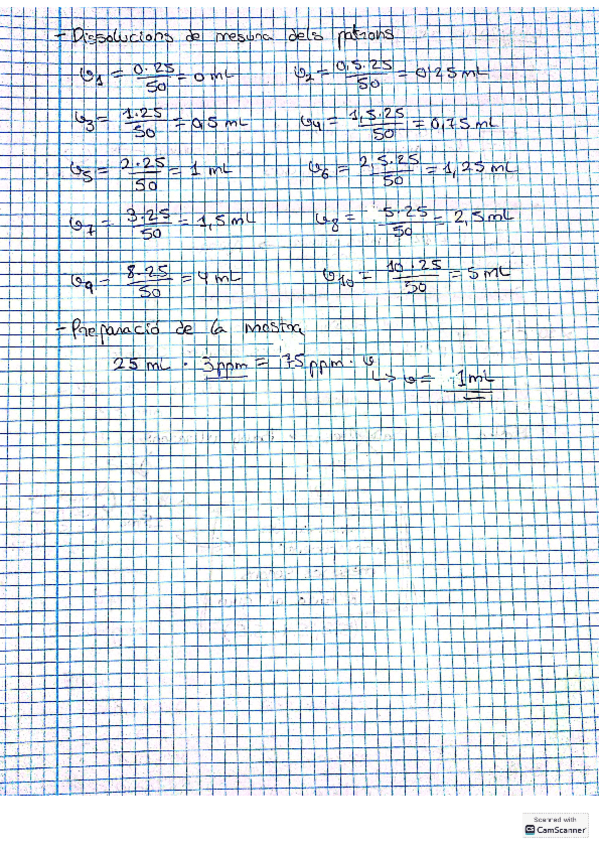 - Dissolucions de mesura dels patrons
v1 = 0·25/50 = 0 mL v2 = 0,5·25/50 = 0,25 mL
v3 = 1·25/50 = 0,5 mL v4 = 1,5·25/50 = 0,75 mL
v5 = 2·25/50 = 1 mL v6 = 2,5·25/50 = 1,25 mL
v7 = 3·25/50 = 1,5 mL v8 = 5·25/50 = 2,5 mL
v9 = 8·25/50 = 4 mL v10 = 10·25/50 = 5 mL
- Preparació de la mostra
25 mL · 3ppm = 75 ppm · v
↳ v = 1mL
Scanned with
CamScanner